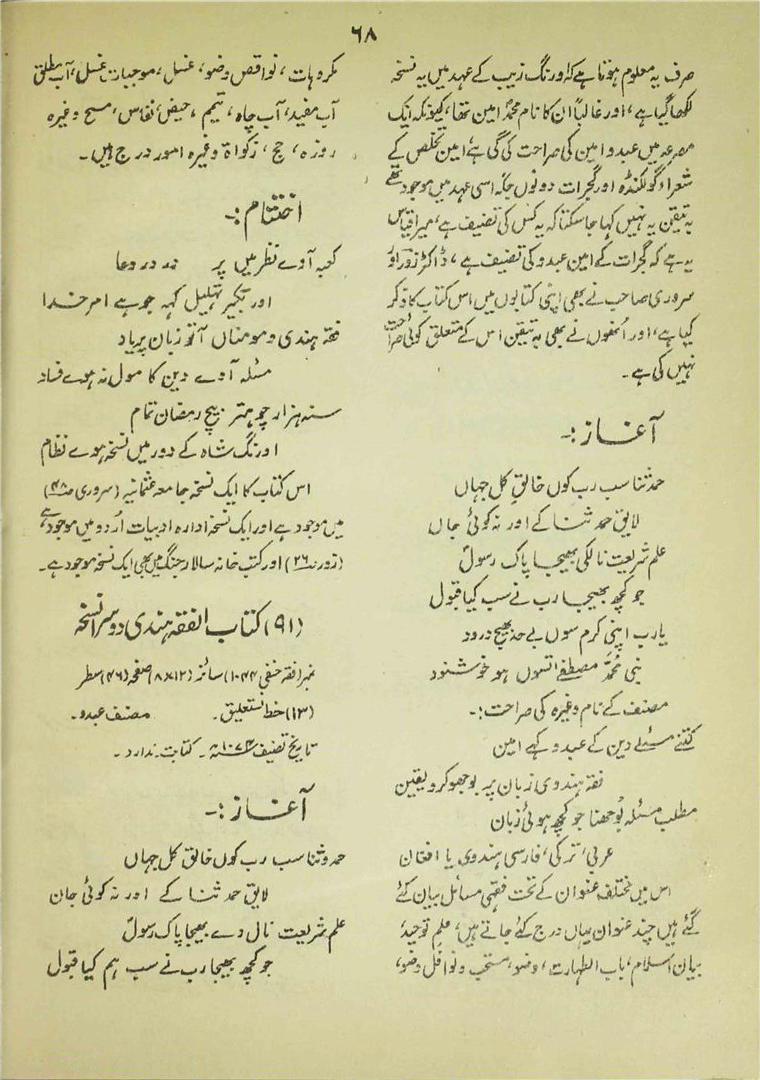 ۶۸
صرف یہ معلوم ہوتا ہے کہ اورنگ زیب کے عہد میں یہ نسخہ
لکھا گیا ہے، اور غالباً ان کا نام محمد امین تھا، کیونکہ ایک
مصرعہ میں عبدو امین کی صراحت کی گئی ہے امین تخلص کے
شعراء گولکنڈہ اور گجرات دونوں جگہ اسی عہد میں موجود تھے
بہ تیقن یہ نہیں کہا جا سکتا کہ یہ کس کی تصنیف ہے، میرا قیاس
یہ ہے کہ گجرات کے امین عبدو کی تصنیف ہے، ڈاکٹر زور اور
سروری صاحب نے بھی اپنی کتابوں میں اس کتاب کا ذکر
کیا ہے، اور اُنھوں نے بھی بہ تیقن اس کے متعلق کوئی صراحت
نہیں کی ہے۔
آغاز :۔
حمد ثنا سب رب کوں خالقِ کل جہاں
لایق حمد ثنا کے اور نہ کوئی جاں
علم شریعت نالکی بھیجا پاک رسولؐ
جو کچھ بھیجا رب نے سب کیا قبول
یارب اپنی کرم سوں بے حد بھیج درود
نبی محمدؐ مصطفےٰ اتسوں ہو خوشنود
مصنف کے نام وغیرہ کی صراحت :۔
کتنے مسئلے دین کے عبدو کہے امین
فقہ ہندوی زبان پر بوجھو کر و یقین
مطلب مسئلہ بُوجھنا جو کچھ ہوئی زبان
عربی، ترکی، فارسی ہندوی یا افغان
اس میں مختلف عنوان کے تحت فقہی مسائل بیان کئے
گئے ہیں چند عنوان یہاں درج کئے جاتے ہیں، علم توحید،
بیان اسلام، باب الطہارت، وضو، مستحب و نوافل وضو،
مکروہات، نواقص وضو، غسل، موجبات غسل، آب مطلق
آب مفید، آب چاہ، تیمم، حیض، نفاس، مسح وغیرہ
روزہ، حج، زکواۃ وغیرہ امور درج ہیں۔
اختتام :۔
کعبہ آوے نظر میں پر ند در دعا
اور تکبیر تہلیل کہہ جو ہے امر خدا
فقہ ہندی و مومناں آنو زبان پریاد
مسئلہ آوے دین کا مول نہ ہوے فساد
سنہ ہزار چوہتر بیچ رمضان تمام
اورنگ شاہ کے دور میں نسخہ ہوے نظام
اس کتاب کا ایک نسخہ جامعہ عثمانیہ (سروری ص ۴۸)
میں موجود ہے اور ایک نسخہ ادارہ ادبیات اُردو میں موجود ہے
(زور ص ۲۶) اور کتب خانہ سالار جنگ میں بھی ایک نسخہ موجود ہے۔
(۹۱) کتاب الفقہ ہندی دوسرا نسخہ
نمبر (فقہ حنفی ۱۰۴۴) سائز (۱۲×۸) صفحہ (۴۶) سطر
(۱۳) خط نستعلیق۔ مصنف عبدو۔
تاریخ تصنیف ۱۰۷۴ھ۔ کتابت ندارد۔
آغاز :۔
حمد و ثنا سب رب کوں خالق کل جہاں
لایق حمد ثنا کے اور نہ کوئی جان
علم شریعت نال دے بھیجا پاک رسولؐ
جو کچھ بھیجا رب نے سب ہم کیا قبول